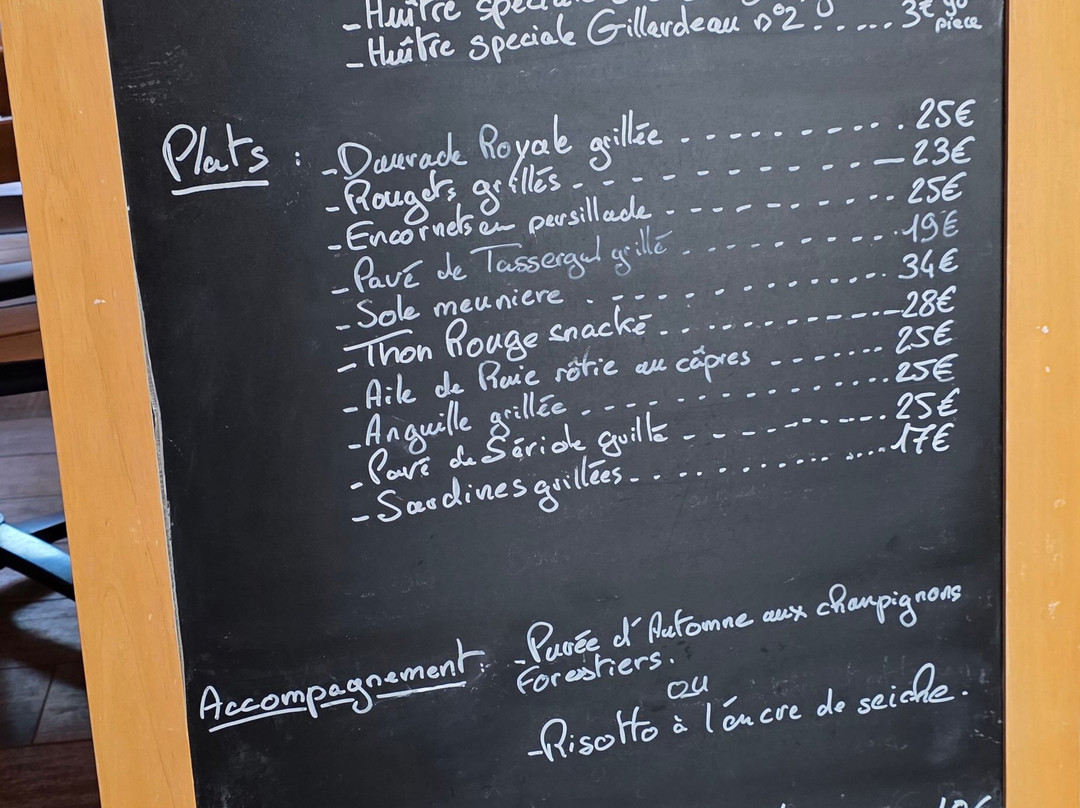 -Huître speciale
-Huître speciale Gillardeau n°2 ..... 3€90 piece
Plats : -Daurade Royale grillée ........... 25€
-Rougets grillés ........... 23€
-Encornets en persillade ........... 25€
-Pavé de Tassergal grillé ........... 19€
-Sole meuniere ........... 34€
-Thon Rouge snacké ........... 28€
-Aile de Raie rôtie au câpres ....... 25€
-Anguille grillée ........... 25€
-Pavé de Sériole grillé ........... 25€
-Sardines grillées ........... 17€
Accompagnement : -Purée d'Automne aux champignons
Forestiers.
ou
-Risotto à l'encre de seiche.